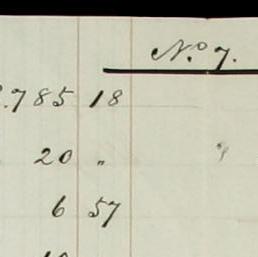 No. 7.
785 18
20 "
6 57